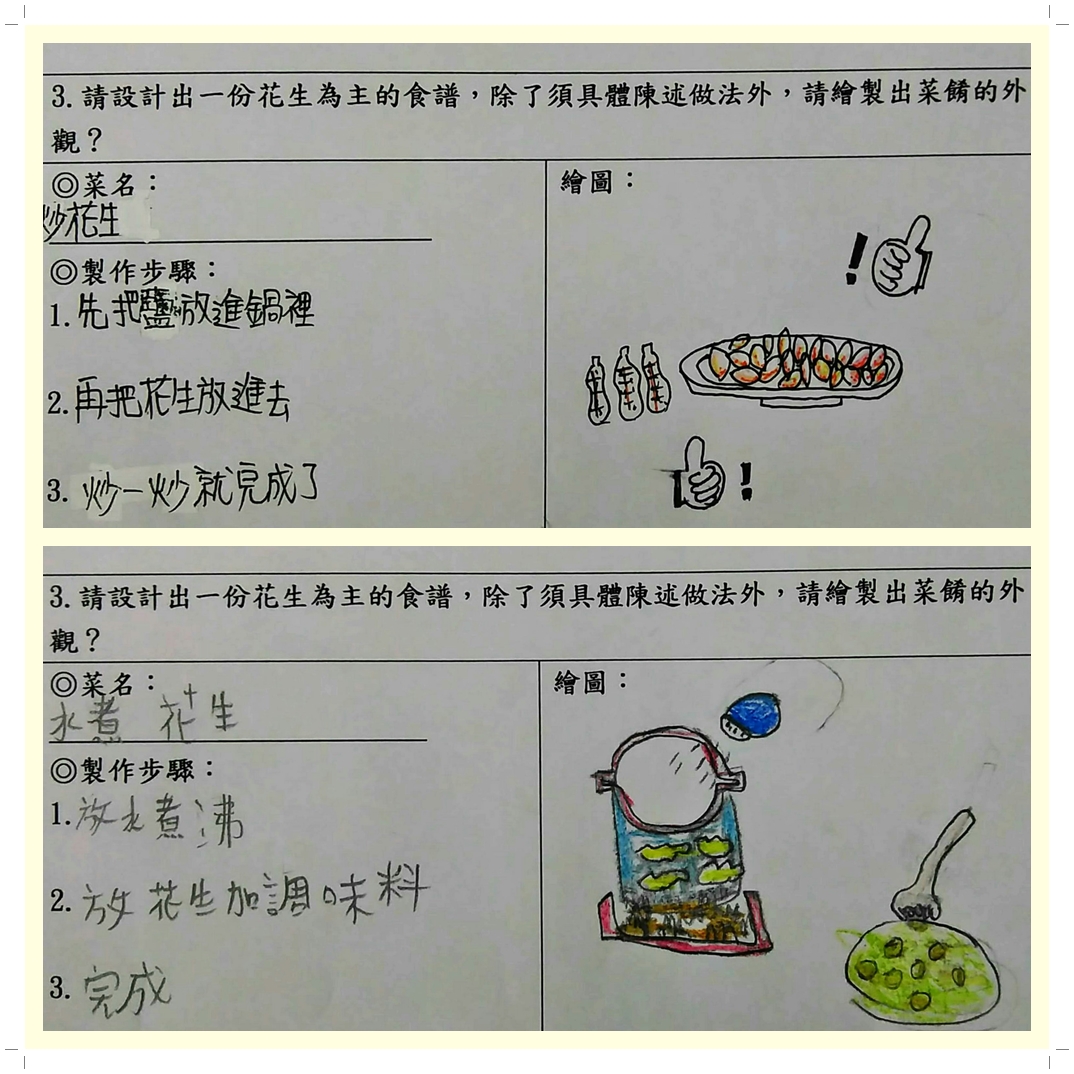 3.請設計出一份花生為主的食譜，除了須具體陳述做法外，請繪製出菜餚的外
觀？
◎菜名：
炒花生
◎製作步驟：
1.先把鹽放進鍋裡
2.再把花生放進去
3.炒一炒就完成了
繪圖：
!
!
3.請設計出一份花生為主的食譜，除了須具體陳述做法外，請繪製出菜餚的外
觀？
◎菜名：
水煮 花生
◎製作步驟：
1.放水煮沸
2.放花生加調味料
3.完成
繪圖：